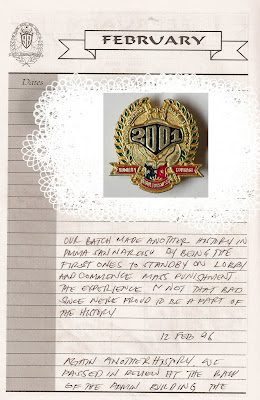 FEBRUARY
Dates
2001
OUR BATCH MADE ANOTHER HISTORY IN
PMMA SAN NARCISO BY BEING THE
FIRST ONES TO STANDBY ON LOBBY
AND COMMENCE MASS PUNISHMENT
THE EXPERIENCE NOT THAT BAD
SINCE WE'RE PROUD TO BE A PART OF
THE HISTORY
12 FEB 96
AGAIN ANOTHER HISTORY WE
PASSED IN REVIEW AT THE BACK
OF THE ADMIN BUILDING THE